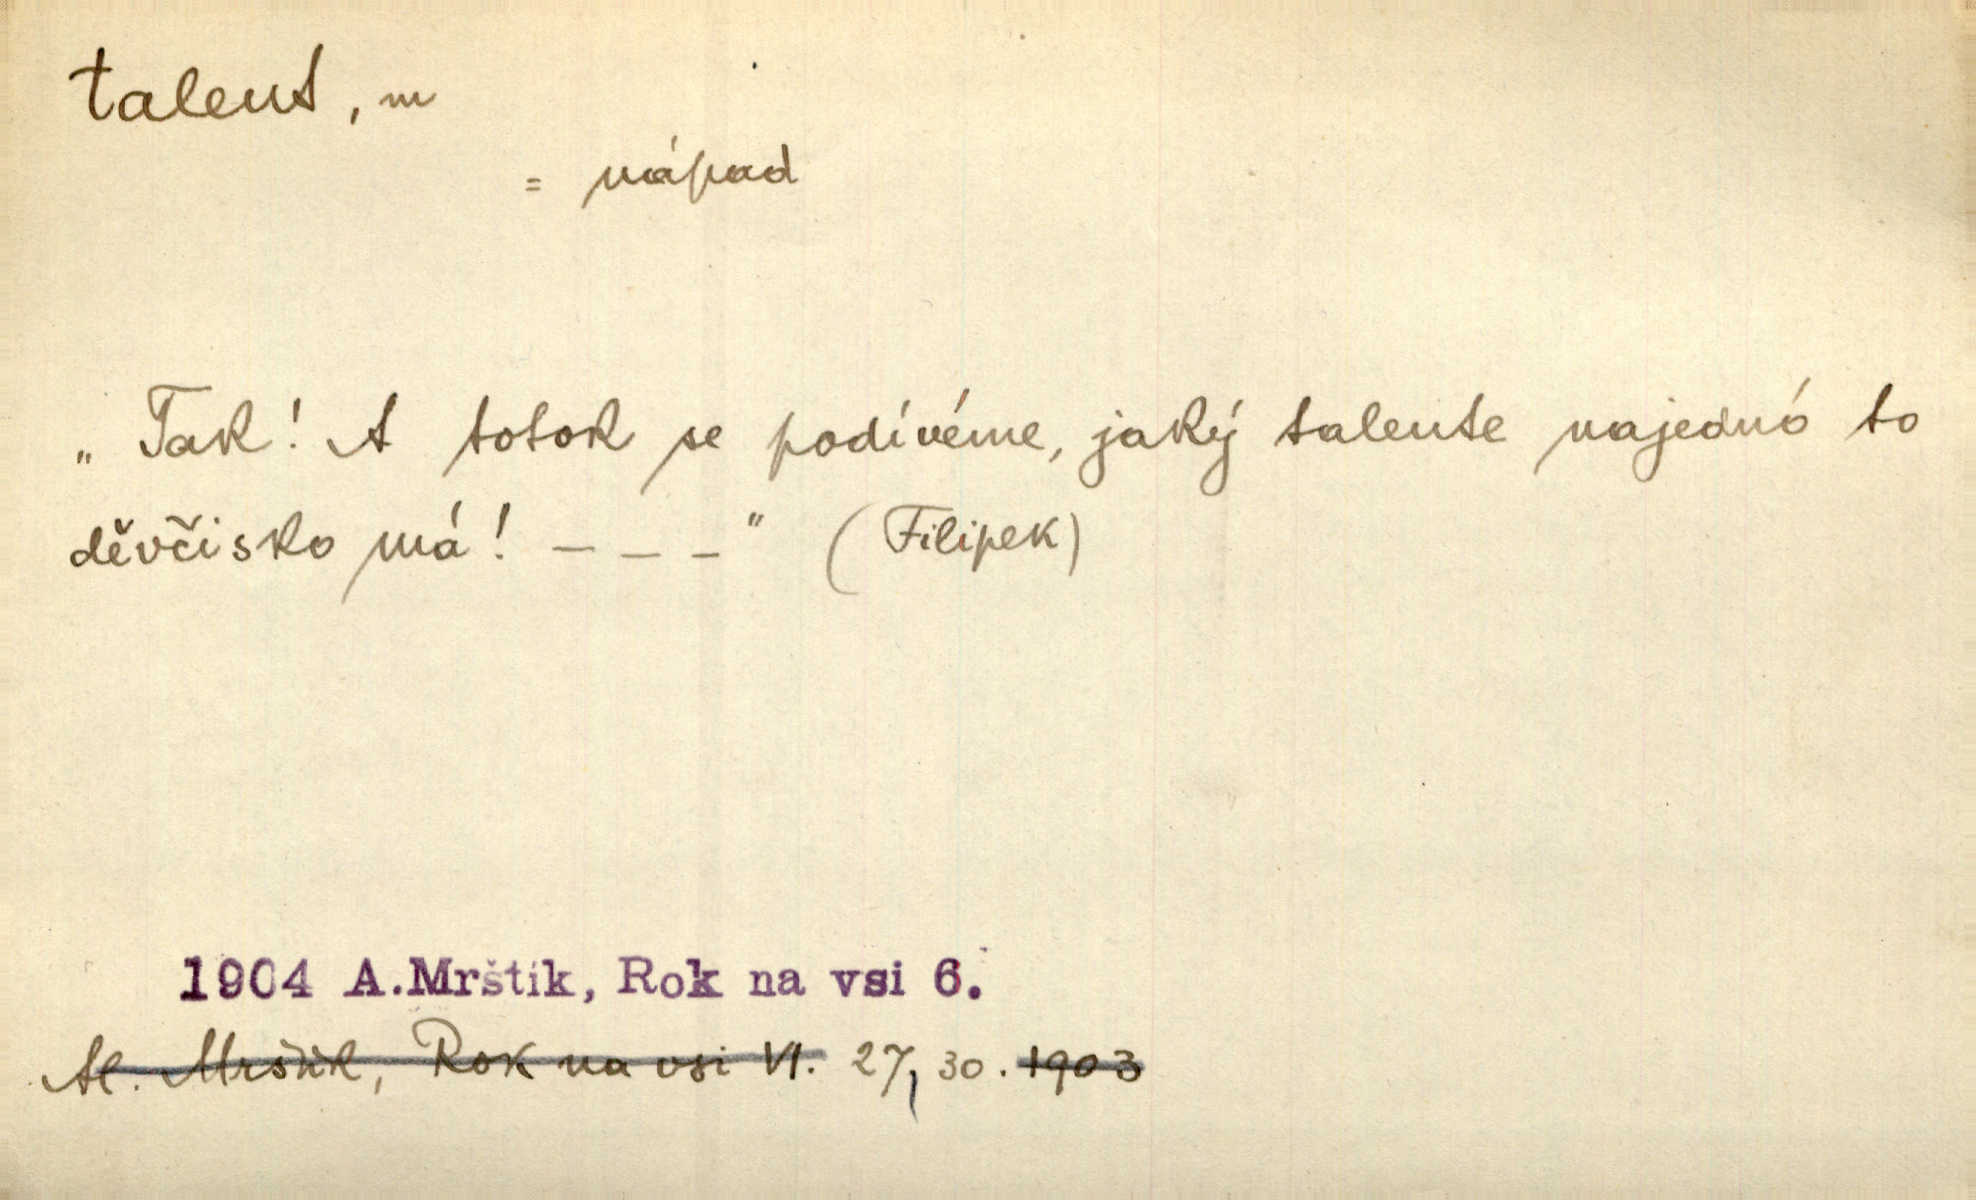 talent, m
= nápad
„Tak! A totok se podívéme, jaký talente najednó to
děvčisko má! – – –" (Filipek)
1904 A.Mrštík, Rok na vsi 6.
Al. Mrštík, Rok na vsi VI. 27, 30. 1903